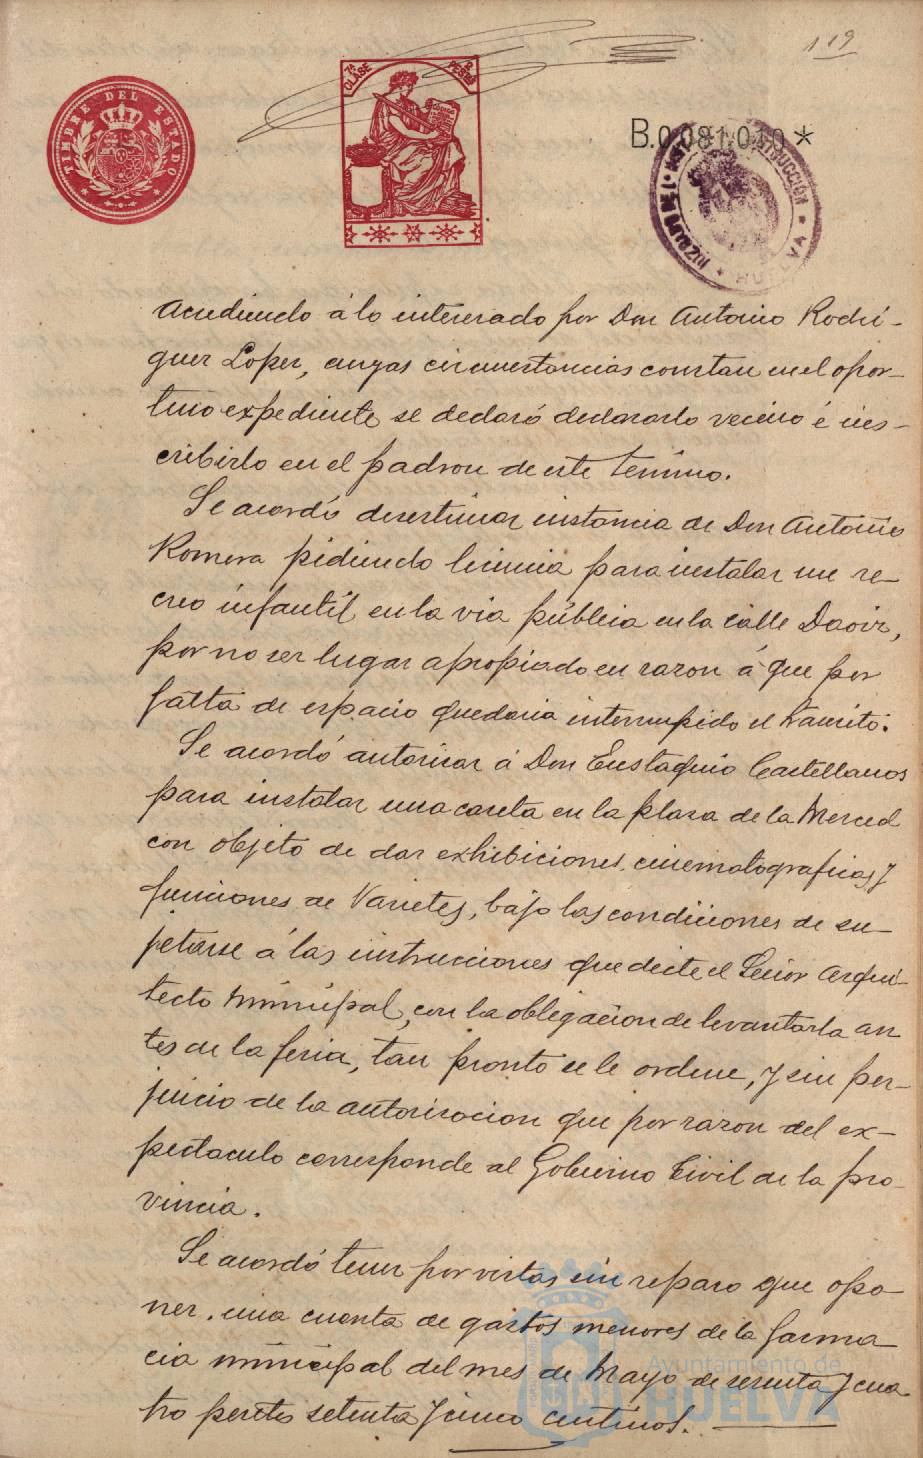 119
TIMBRE DEL ESTADO
7ª CLASE
2 PESETAS
B.0081010*
JUZGADO DE 1ª INSTRUCCIÓN
HUELVA
Acudiendo á lo interesado por Don Antonio Rodri-
guez Lopez, cuyas circunstancias constan en el opor-
tuno expediente se declaró declararlo vecino é ins-
cribirlo en el padron de este termino.
Se acordó desestimar instancia de Don Antonio
Romera pidiendo licencia para instalar un re-
creo infantil en la via pública en la calle Daoiz,
por no ser lugar apropiado en razon á que por
falta de espacio quedaria interrumpido el transito.
Se acordó autorizar á Don Eustaquio Castellanos
para instalar una caseta en la plaza de la Merced
con objeto de dar exhibiciones cinematograficas y
funciones de Varietes, bajo las condiciones de su-
jetarse á las instrucciones que dicte el Señor Arqui-
tecto Municipal, con la obligacion de levantarla an
tes de la feria, tan pronto se le ordene, y sin per-
juicio de la autorizacion que por razon del ex-
pectaculo corresponde al Gobierno Civil de la pro-
vincia.
Se acordó tener por vistas sin reparo que opo-
ner, una cuenta de gastos menores de la farma
cia municipal del mes de Mayo de sesenta y cua
tro pesetas setenta y cinco centimos.
Ayuntamiento de
HUELVA